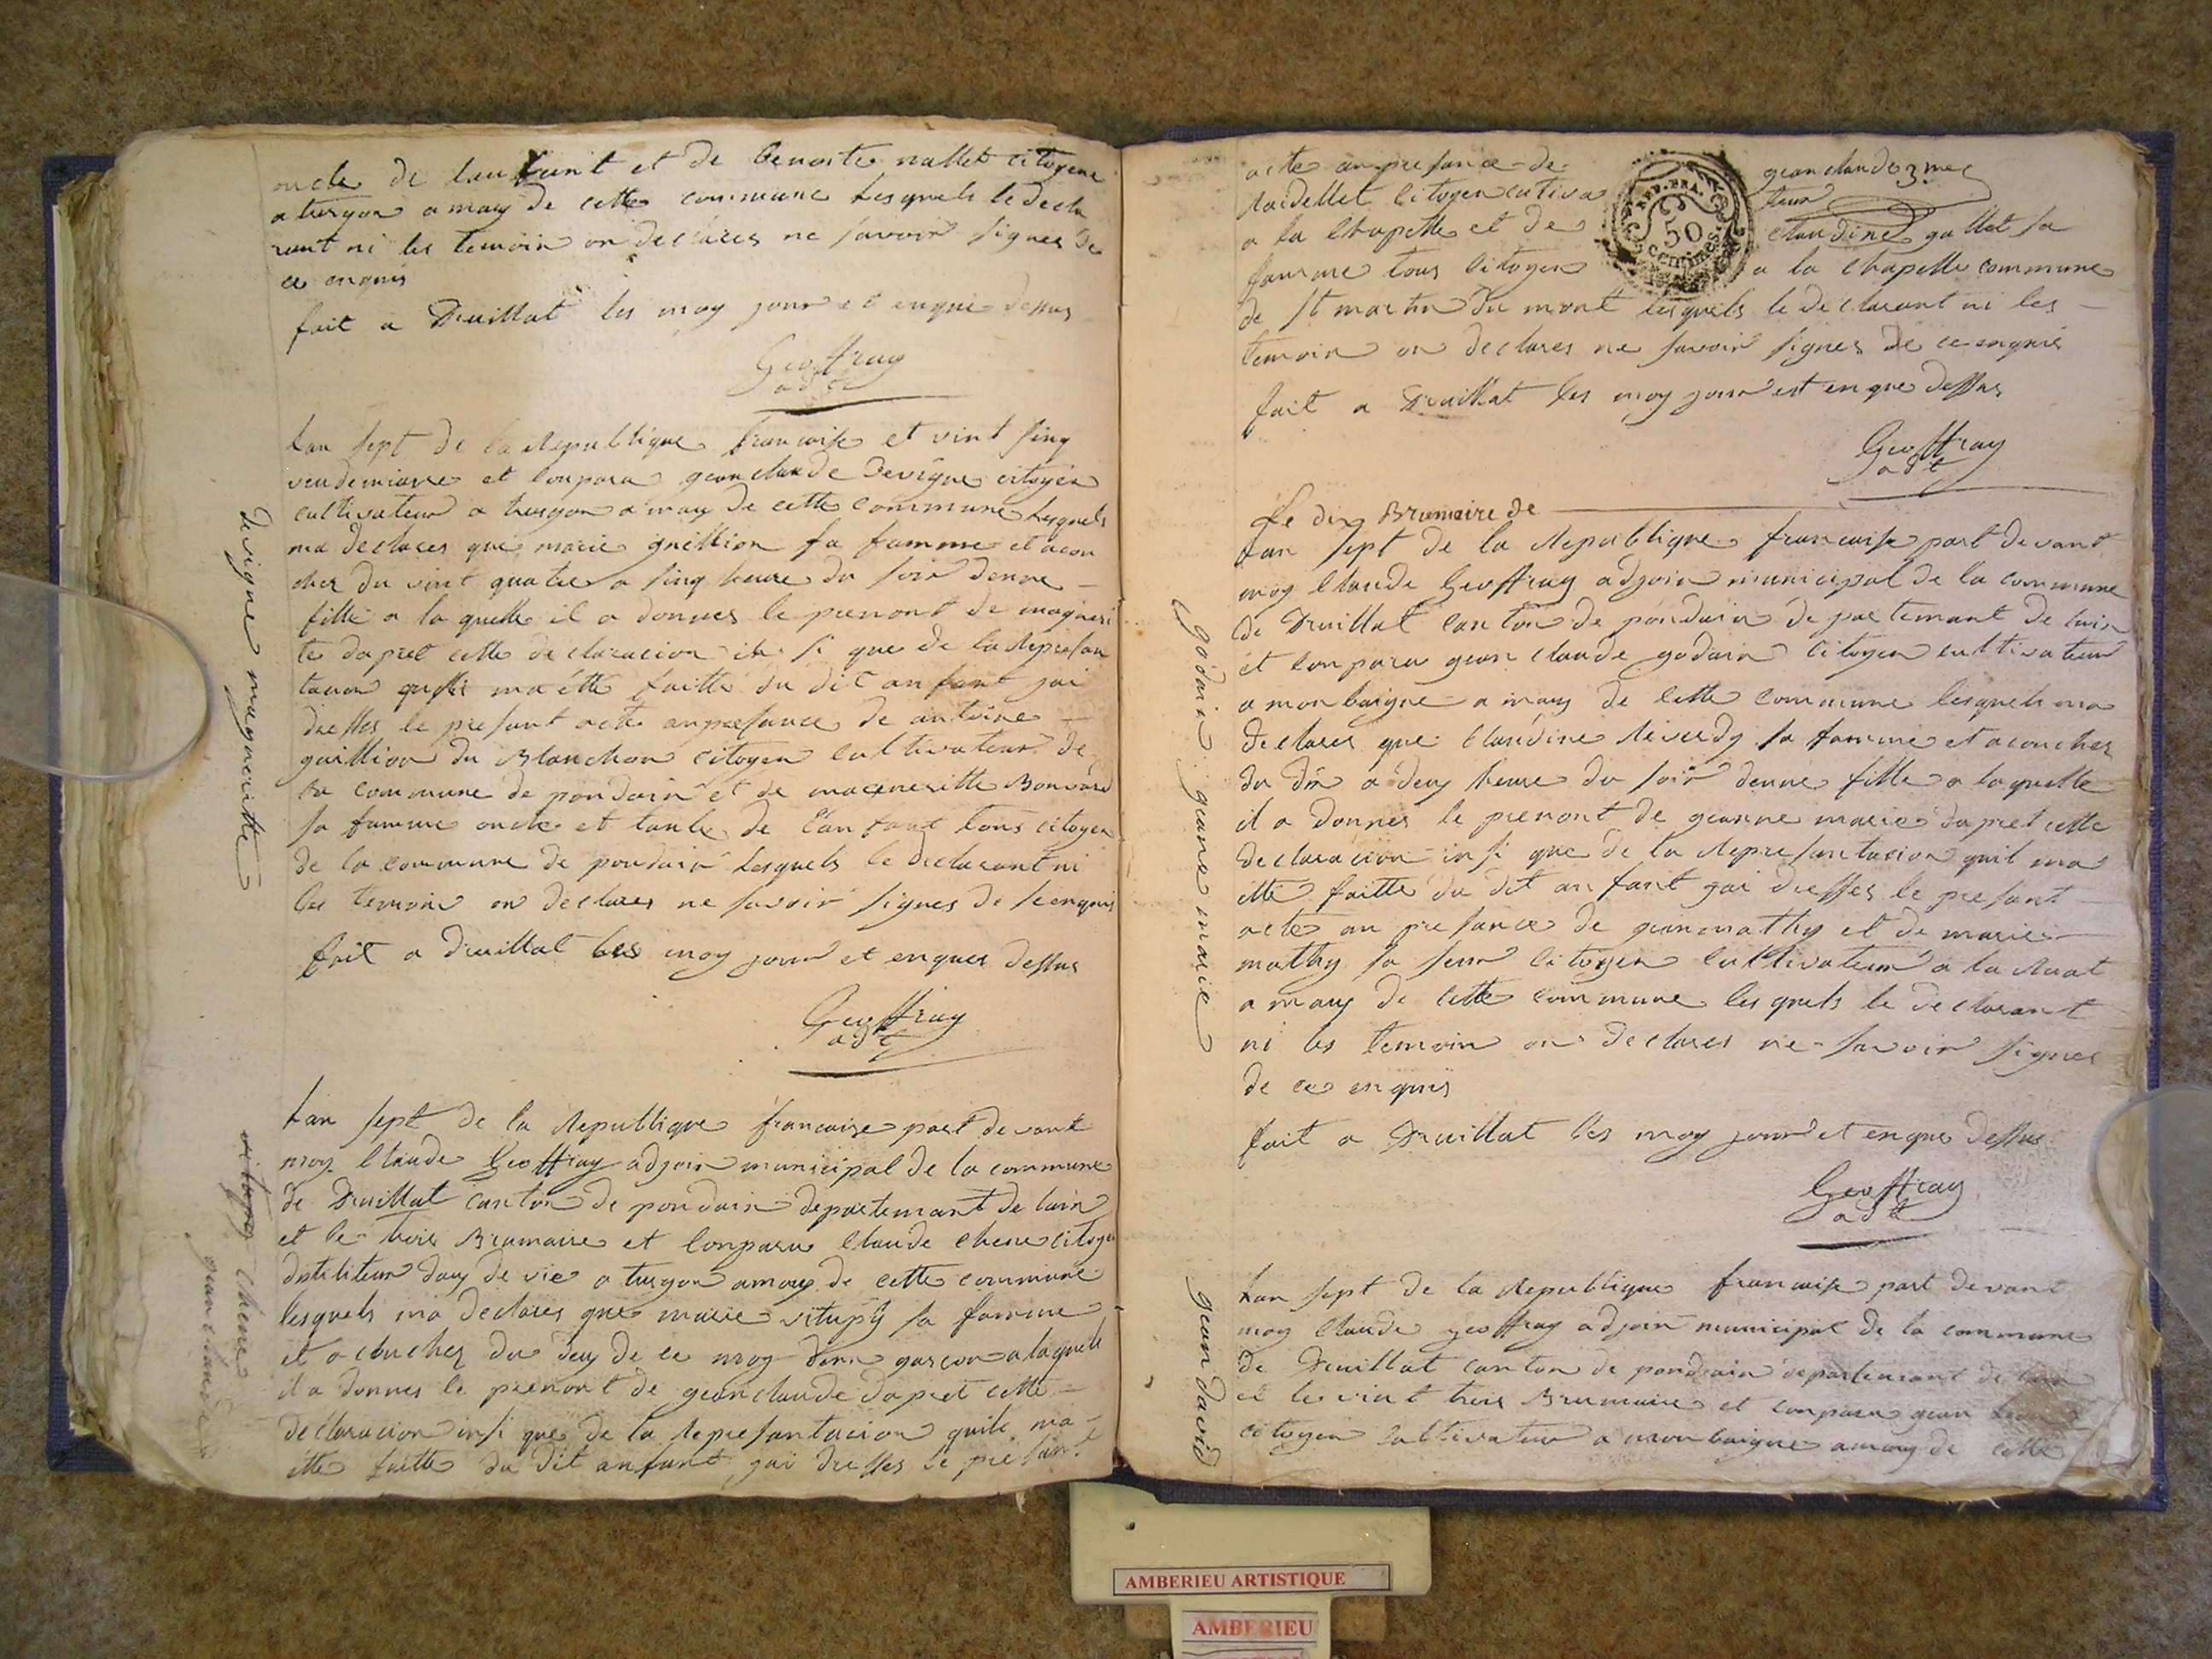 oncle de lenfant et de benoite nallet citoyene
a turgon amay de cette commune lesquels le decla
rant ni les temoin on declares ne savoir signes de
ce enquis
fait a Druillat les moy jour et enque dessus
Geoffray
adt
Lan sept de la Republique francoise et vint sinq
vendemiaire et Conpara jean claude Devigne citoyen
cultivateur a turgon a may de cette commune lesquels
ma declares que marie guillion sa famme et acou
cher du vint quatre a sinq heure du soir denne
fille a la quelle il a donnes le prenont de magueri
te dapret cette declaracion in si que de la Represan
tacion quil ma étté faitte du dit anfant jai
dresses le presant acte anpresance de antoine
guillion du Blanchon citoyen cultivateur de
la commune de pondain et de magueritte Bonvard
sa famme oncle et tante de l'anfant tous citoyen
de la commune de pondain lesquels le declarant ni
les temoin on declares ne savoir signes de se enquis
fait a druillat les moy jour et enques dessus
Geoffray
adt
Lan sept de la Republique francoise part devant
moy Claude Geoffray adjoin municipal de la commune
de Druillat canton de pondain departemant de lain
et le trois Brumaire et Conpara Claude Chene citoye
distiliteur dauy de vie a turgon amay de cette commune
lesquels ma declares que marie vitupy sa famme
et acoucher du deuy de ce moy denn garcon alaquele
il a donnes le prenont de jeanclaude dapret cette
declaracion insi que de la Represantacion quile ma
étté faitte du dit anfant jai dresses le presant
devigne magueritte
Chene
jean claude
acte anpresance de jean claude
Raidellet Citoyen cutiva teur
a la Chapelle et de claudine gallet sa
famme tous Citoyen a la Chapelle commune
REP. FRA.
50
Centimes
de st martin du mont lesquels le declarant ni les
temoin on declares ne savoir signes de ce enquis
fait a Druillat les moy jour est enque dessus
Geoffray
adt
Le dix Brumaire de
Lan sept de la Republique francoise part devant
moy Claude Geoffray adjoin municipal de la commune
de Druillat Canton de pondain departemant de lain
et Conpara jean claude godain Citoyen cultivateur
a monbaigne a may de Cette Commune lesquels ma
declares que Claudine Reverdy sa famme et acoucher
du dix a deuy heure du soir denne fille a laquelle
il a donnes le prenont de jeanne marie dapret cette
declaracion insi que de la Represantacion quil ma
étté faitte du dit anfant jai dresses le presant
acte an presance de jean mathy et de marie
mathy sa seur Citoyen Cultivateur a la Ruat
a may de Cette Commune lesquels le declarant
ni les temoin on declares ne savoir signes
de ce enquis
fait a Druillat les moy jour et enque dessus
Geoffray
adt
Lan sept de la Republique francoise part devant
moy Claude geoffray adjoin municipal de la commune
de Druillat canton de pondain departemant de lain
et le vint trois Brumaire et conpara jean
citoyen Cultivateur a monbaigne amay de cette
godain jeane marie
jean david
AMBERIEU ARTISTIQUE
AMBERIEU